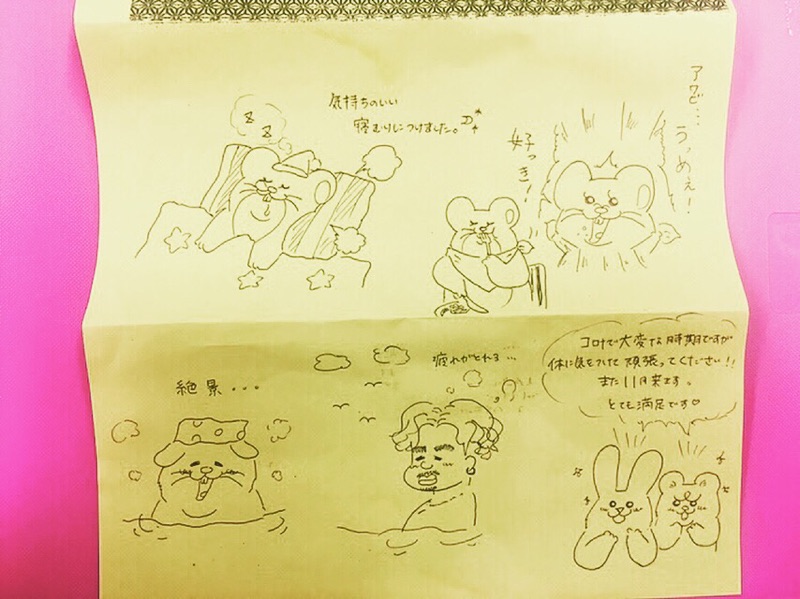 気持ちのいい
寝むりにつけました。
Z
Z
アワビ...
うっめぇ!
好っき!
絶景...
疲れがとれる...
コロナで大変な時期ですが
体に気をつけて頑張ってください!!
また11月来ます。
とても満足です♡